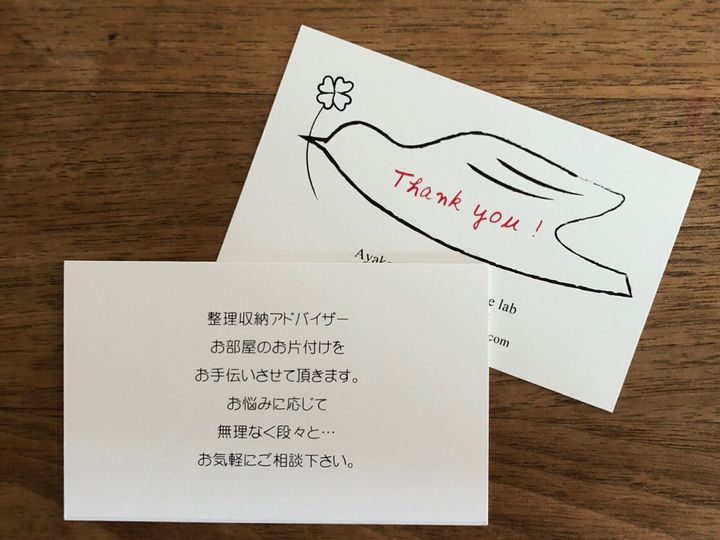 Thank you!
Ayak
e lab
com
整理収納アドバイザー
お部屋のお片付けを
お手伝いさせて頂きます。
お悩みに応じて
無理なく段々と…
お気軽にご相談下さい。